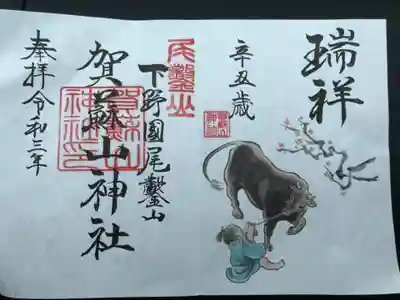 瑞祥
辛丑歳
尾鑿山
下野國尾鑿山
賀蘇山神社
賀蘇山神社印
奉拝令和三年